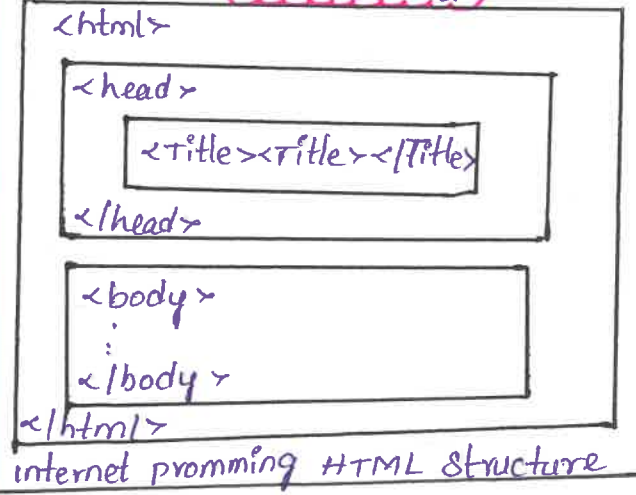 <html>
<head>
<Title><Title></Title>
</head>
<body>
:
</body>
</html>
internet promming HTML Structure